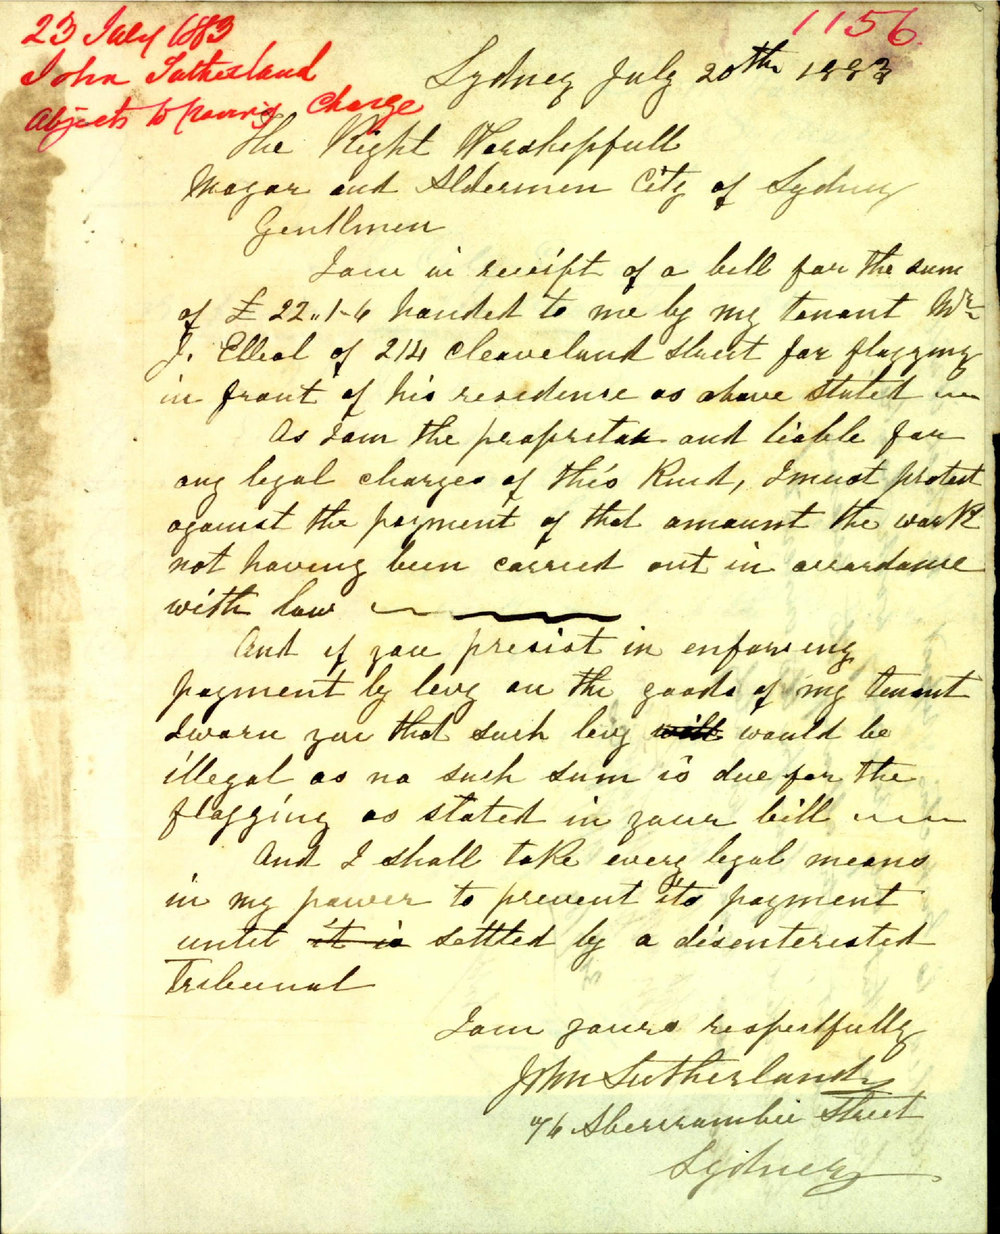 23 July 1883
John Sutherland
Objects to paving Charge
1156.
Sydney July 20th 1883
The Right Worshepfull
Mayor and Aldermen City of Sydney
Gentlmen
I am in receipt of a bill for the sum
of £22"1-6 handed to me by my tenant Mr
J. of 214 Cleaveland Street for flagging
in front of his residense as above stated
As I am the propretor and liable for
any legal charges of this Kind, I must protest
against the payment of that amount the work
not having been carried out in accordance
with law
And if you presist in enforceing
payment by levy on the goods of my tenant
I warn you that such levy will would be
illegal as no such sum is due for the
flagging as stated in your bill
And I shall take every legal means
in my power to prevent its payment
until it is settled by a disenterested
Tribunal
I am yours respectfully
John Sutherland
76 Abercrambie Street
Sydney